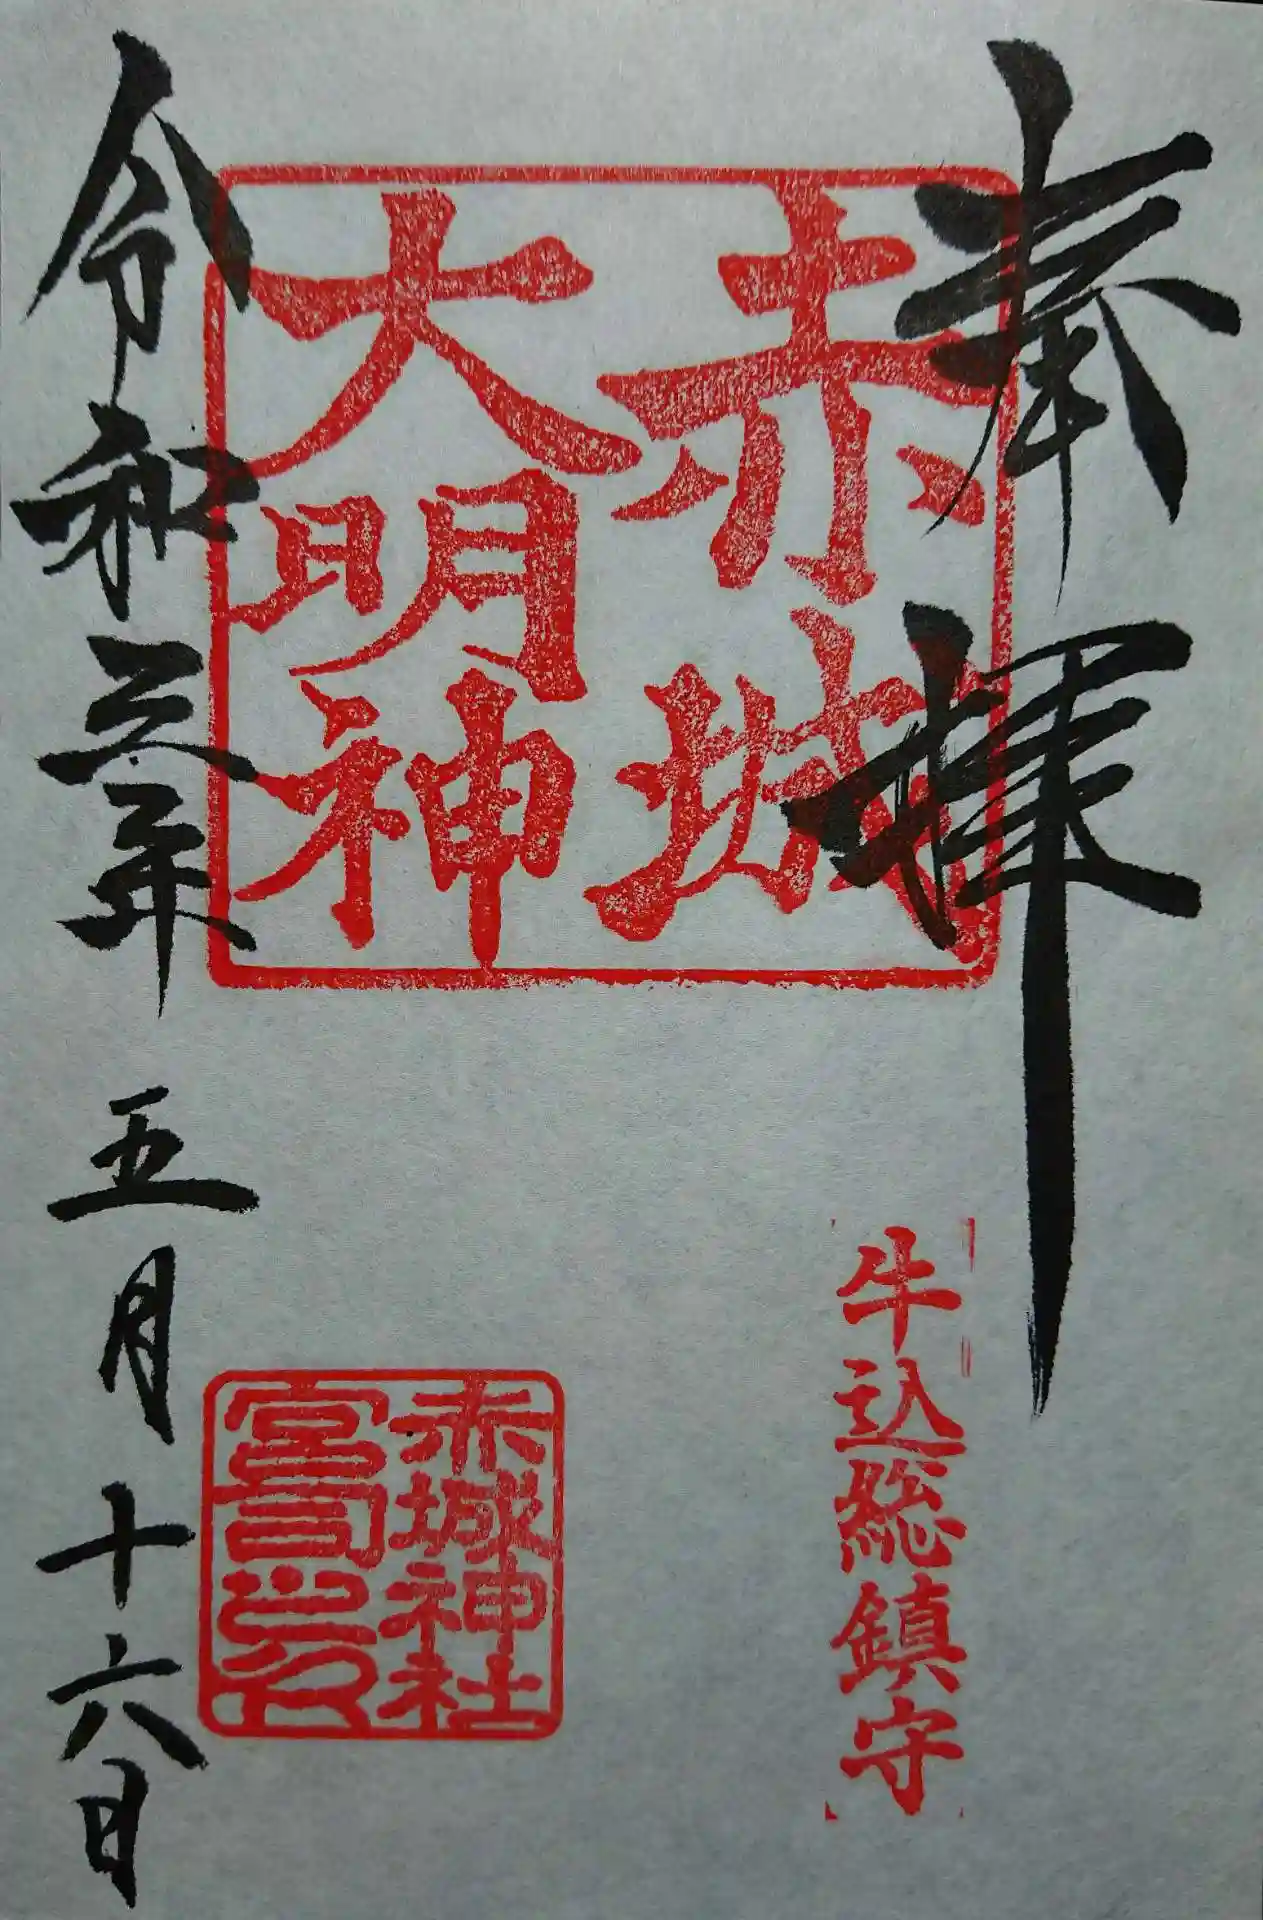 奉拝
牛込総鎮守
赤城
大明神
赤城神社
宮司之印
令和三年 五月 十六日